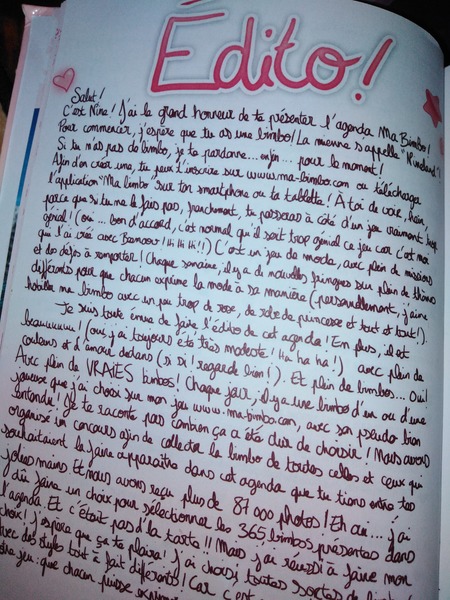 Édito!
Salut!
C'est Nine! J'ai le grand honneur de te présenter l'agenda Ma Bimbo!
Pour commencer, j'espère que tu as une bimbo! La mienne s'appelle
Si tu n'as pas de bimbo, je te pardonne... enfin... pour le moment!
Afin d'en créer une, tu peux t'inscrire sur www.ma-bimbo.com ou télécharge
l'application "Ma Bimbo sur ton smartphone ou ta tablette! À toi de voir, hein,
parce que si tu ne le fais pas, franchement, tu passeras à côté d'un jeu vraiment trop
génial! (oui... bon d'accord, c'est normal qu'il soit trop génial ce jeu car c'est moi
qui l'ai créé avec Beemoov! Hi hi hi!!) C'est un jeu de mode, avec plein de missions
et des défis à remporter! Chaque semaine, il y a de nouvelles fringues sur plein de thèmes
différents pour que chacun exprime la mode à sa manière (personnellement, j'aime
habiller ma bimbo avec un peu trop de rose, de robe de princesse et tout et tout!).
Je suis toute émue de faire l'édito de cet agenda! En plus, il est
beauuuuuu! (oui, j'ai toujours été très modeste! Ha ha ha!) avec plein de
couleurs et d'amour dedans (si si! regarde bien!). Et plein de bimbos... Oui!
Avec plein de VRAIES bimbos! Chaque jour, il y a une bimbo d'un ou d'une
joueuse que j'ai choisi sur mon jeu www.ma-bimbo.com, avec son pseudo bien
entendu! Je te raconte pas combien ça a été dur de choisir! Nous avons
organisé un concours afin de collecter la bimbo de toutes celles et ceux qui
souhaitaient la faire apparaître dans cet agenda que tu tiens entre tes
jolies mains Et nous avons reçu plus de 87 000 photos! Eh oui... j'ai
dû faire un choix pour sélectionner les 365 bimbos présentes dans
l'agenda Et c'était pas d'la tarte!! Mais j'ai réussi à faire mon
choix! J'espère que ça te plaira! J'ai choisi toutes sortes de bimbos
avec des styles tout à fait différents! Car c'est
jeu: que chacun puisse